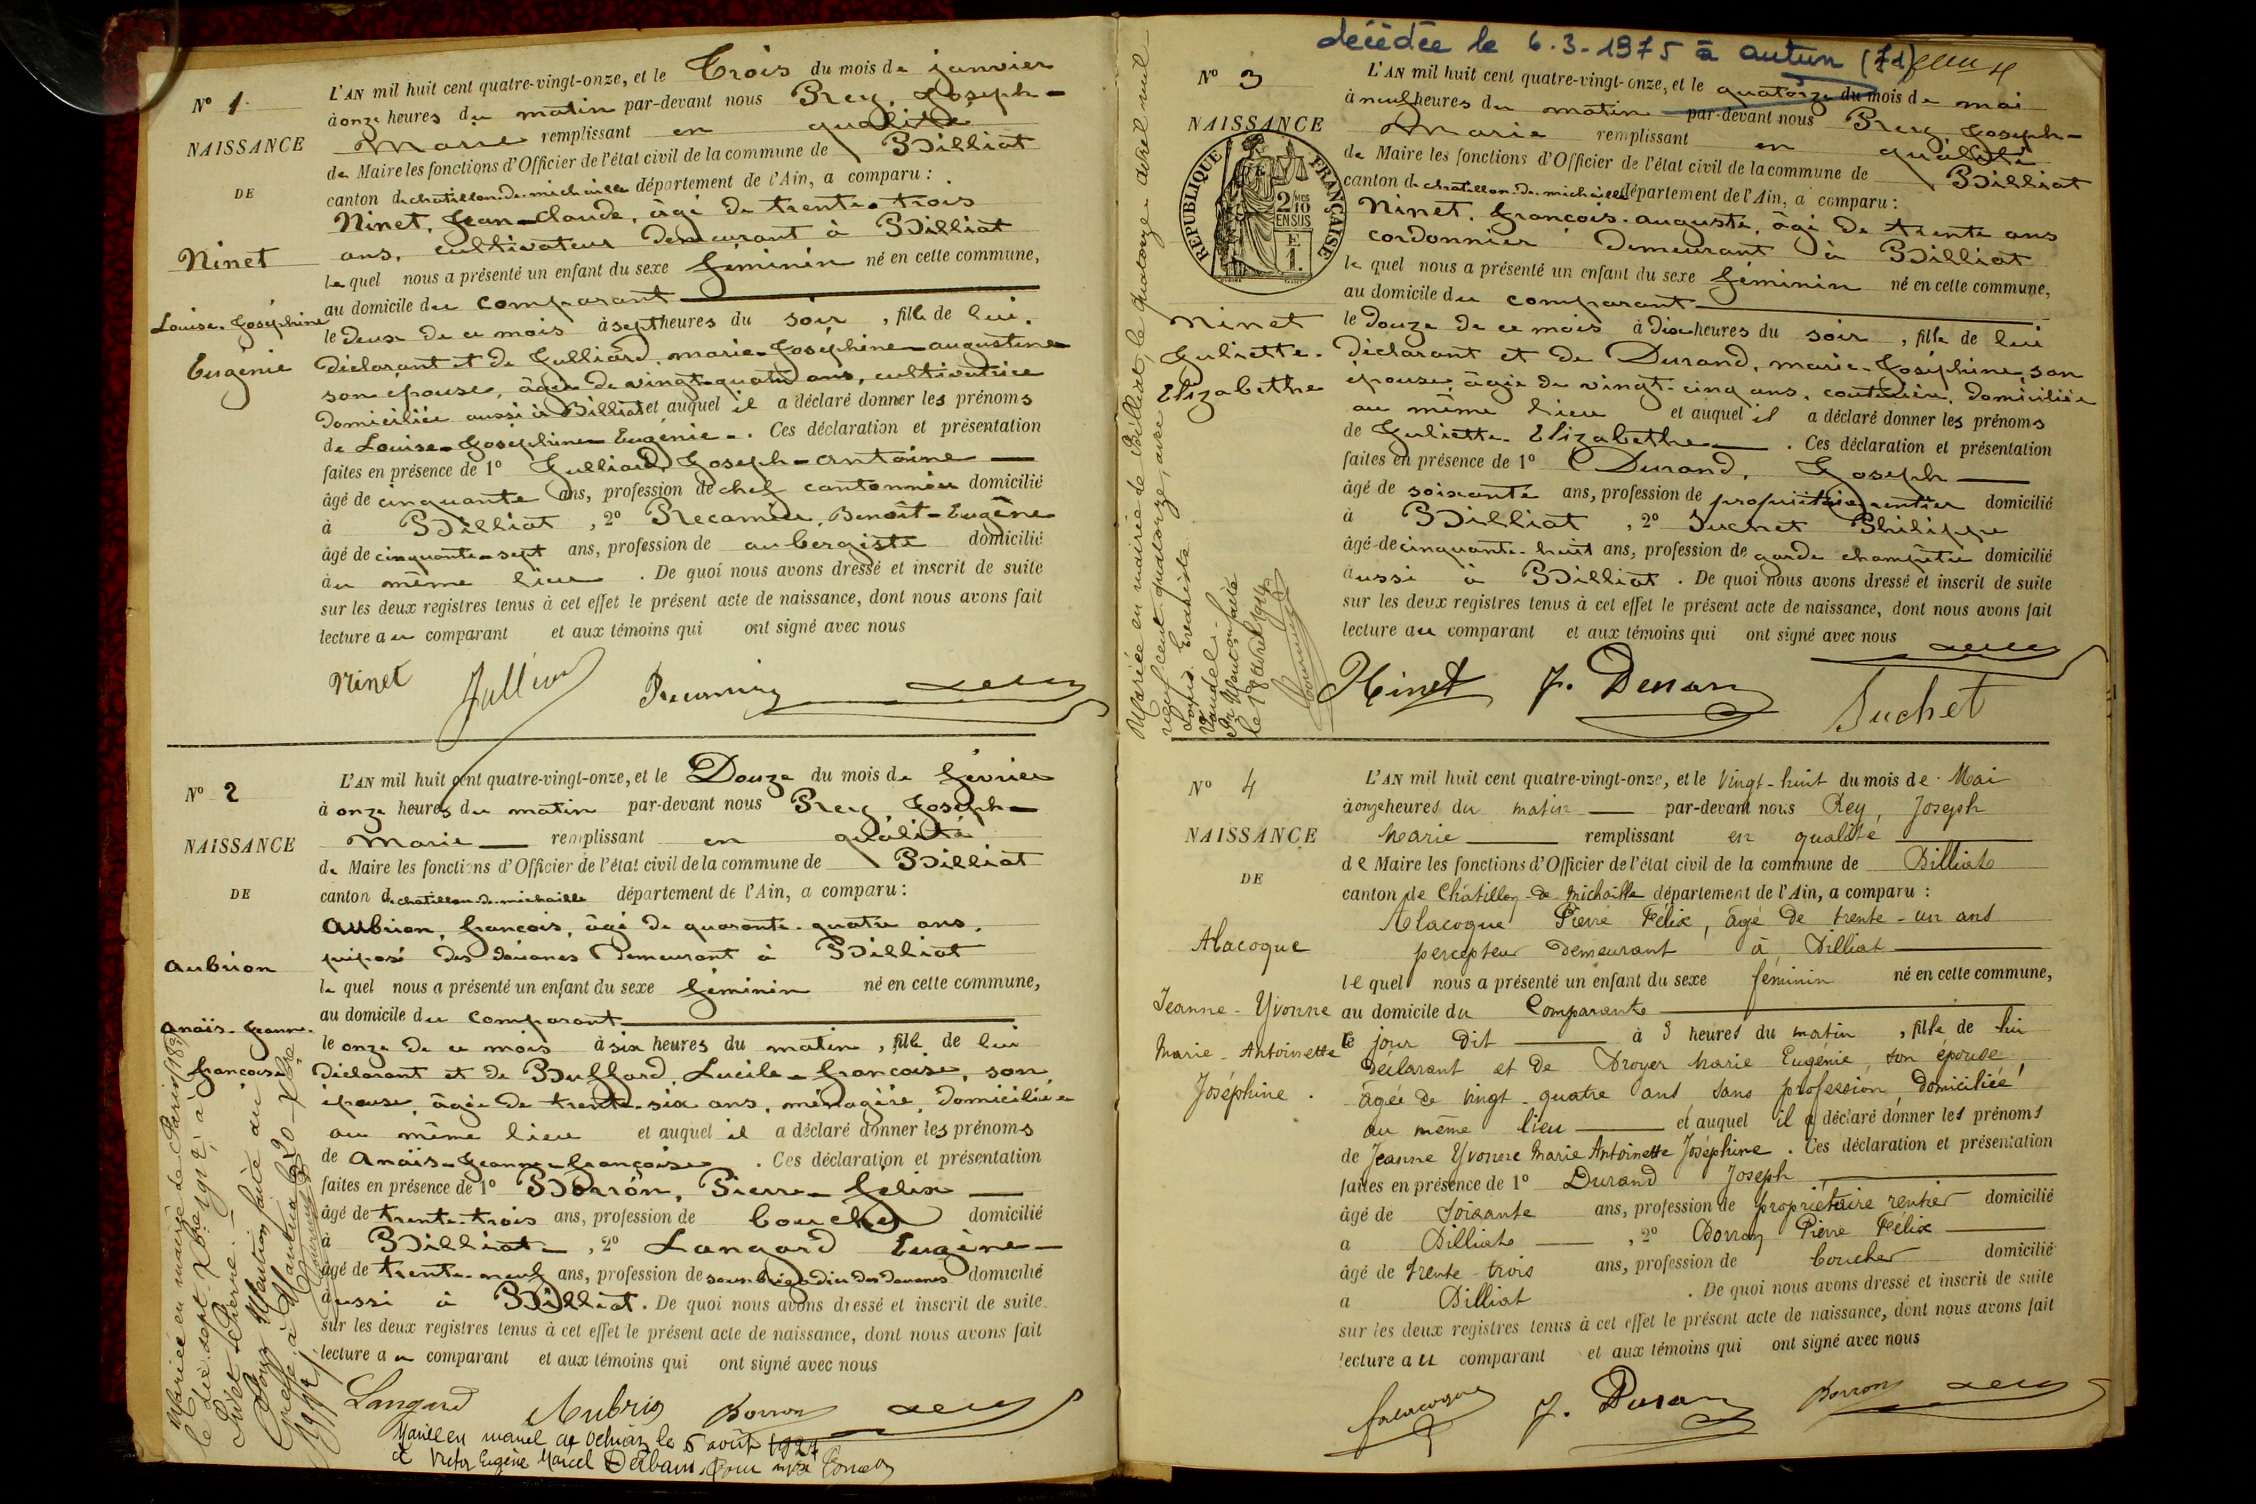 N° 1
NAISSANCE
DE
Ninet
Louise-Joséphine
Eugénie
L'AN mil huit cent quatre-vingt-onze, et le Trois du mois de janvier
à onze heures du matin par-devant nous Rey, Joseph-
Marie remplissant en qualité
de Maire les fonctions d'Officier de l'état civil de la commune de Billiat
canton de chatillon-de-michaille département de l'Ain, a comparu :
Ninet, Jean-Claude, âgé de trente-trois
ans, cultivateur demeurant à Billiat
lequel nous a présenté un enfant du sexe féminin né en cette commune,
au domicile du comparant
le deux de ce mois à sept heures du soir, fille de lui,
déclarant et de Julliard, marie-Joséphine-augustine
son épouse, âgée de vingt-quatre ans, cultivatrice
domiciliée aussi à Billiat et auquel il a déclaré donner les prénoms
de Louise-Joséphine-Eugénie. Ces déclaration et présentation
faites en présence de 1° Julliard, Joseph-antoine
âgé de cinquante ans, profession de chef cantonnier domicilié
à Billiat, 2° Recamier, Benoît-Eugène
âgé de cinquante-sept ans, profession de aubergiste domicilié
au même lieu. De quoi nous avons dressé et inscrit de suite
sur les deux registres tenus à cet effet le présent acte de naissance, dont nous avons fait
lecture au comparant et aux témoins qui ont signé avec nous
Ninet
N° 2
NAISSANCE
DE
Aubrion
Anaïs-Jeanne-
françoise
L'AN mil huit cent quatre-vingt-onze, et le Douze du mois de février
à onze heures du matin par-devant nous Rey, Joseph-
Marie remplissant en qualité
de Maire les fonctions d'Officier de l'état civil de la commune de Billiat
canton de chatillon-de-michaille département de l'Ain, a comparu :
Aubrion, françois, âgé de quarante-quatre ans,
préposé des douanes demeurant à Billiat
lequel nous a présenté un enfant du sexe féminin né en cette commune,
au domicile du comparant
le onze de ce mois à six heures du matin, fille de lui
déclarant et de Buffard, Lucile-françoise, son
épouse, âgée de trente-six ans, ménagère, domiciliée
au même lieu et auquel il a déclaré donner les prénoms
de Anaïs-Jeanne-françoise. Ces déclaration et présentation
faites en présence de 1° Borron, Pierre-felix
âgé de trente-trois ans, profession de boucher domicilié
à Billiat, 2° Langard Eugène
âgé de trente-neuf ans, profession de sous brigadier des douanes domicilié
aussi à Billiat. De quoi nous avons dressé et inscrit de suite
sur les deux registres tenus à cet effet le présent acte de naissance, dont nous avons fait
lecture au comparant et aux témoins qui ont signé avec nous
Langard Borron
le 5 août 1924
Victor Eugène Marcel
Mariée en mairie de Paris
le dix sept
décédée le 6.3-1975 à autun (71)
N° 3
NAISSANCE
REPUBLIQUE FRANÇAISE
2 10
EN SUS
E
1.
Ninet
Juliette-
Elizabethe
L'AN mil huit cent quatre-vingt-onze, et le quatorze du mois de mai
à neuf heures du matin par-devant nous Rey Joseph-
Marie remplissant en qualité
de Maire les fonctions d'Officier de l'état civil de la commune de Billiat
canton de chatillon-de-michaille département de l'Ain, a comparu :
Ninet, françois-auguste, âgé de trente ans
cordonnier demeurant à Billiat
lequel nous a présenté un enfant du sexe féminin né en cette commune,
au domicile du comparant
le douze de ce mois à dix heures du soir, fille de lui
déclarant et de Durand, marie-Joséphine, son
épouse âgée de vingt-cinq ans, couturière, domiciliée
au même lieu et auquel il a déclaré donner les prénoms
de Juliette-Elizabethe. Ces déclaration et présentation
faites en présence de 1° Durand, Joseph
âgé de soixante ans, profession de propriétaire rentier domicilié
à Billiat, 2° Suchet Philippe
âgé de cinquante-huit ans, profession de garde champêtre domicilié
aussi à Billiat. De quoi nous avons dressé et inscrit de suite
sur les deux registres tenus à cet effet le présent acte de naissance, dont nous avons fait
lecture au comparant et aux témoins qui ont signé avec nous
Ninet J. Duran Suchet
Mariée en mairie de Billiat, le quatorze avril mil
neuf cent quatorze, avec
N° 4
NAISSANCE
DE
Alacoque
Jeanne-Yvonne
Marie-Antoinette
Joséphine.
L'AN mil huit cent quatre-vingt-onze, et le Vingt-huit du mois de Mai
à onze heures du matin par-devant nous Rey, Joseph
Marie remplissant en qualité
de Maire les fonctions d'Officier de l'état civil de la commune de Billiat
canton de Châtillon-de-Michaille département de l'Ain, a comparu :
Alacoque Pierre Félix, âgé de trente-un ans
percepteur demeurant à Billiat
lequel nous a présenté un enfant du sexe féminin né en cette commune,
au domicile du Comparant
le jour dit à 5 heures du matin, fille de lui
déclarant et de Droyer Marie Eugénie, son épouse
âgée de vingt-quatre ans sans profession, domiciliée
au même lieu et auquel il a déclaré donner les prénoms
de Jeanne Yvonne Marie Antoinette Joséphine. Ces déclaration et présentation
faites en présence de 1° Durand Joseph
âgé de Soixante ans, profession de propriétaire rentier domicilié
à Billiat, 2° Borron Pierre Félix
âgé de trente-trois ans, profession de boucher domicilié
à Billiat. De quoi nous avons dressé et inscrit de suite
sur les deux registres tenus à cet effet le présent acte de naissance, dont nous avons fait
lecture au comparant et aux témoins qui ont signé avec nous
J. Duran Borron